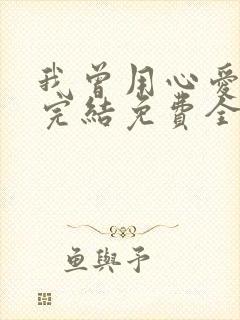 我曾用心愛
完結免費全
鱼與予